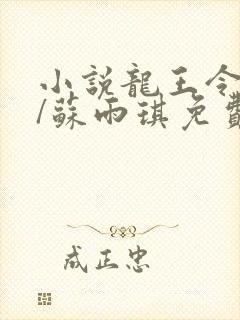 小說龍王令
/蘇雨琪免費
成正忠